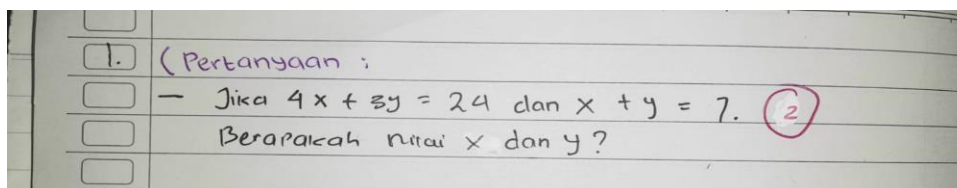 1. ( Pertanyaan :
- Jika 4x + 3y = 24 dan x + y = 7. 2
Berapakah nilai x dan y?